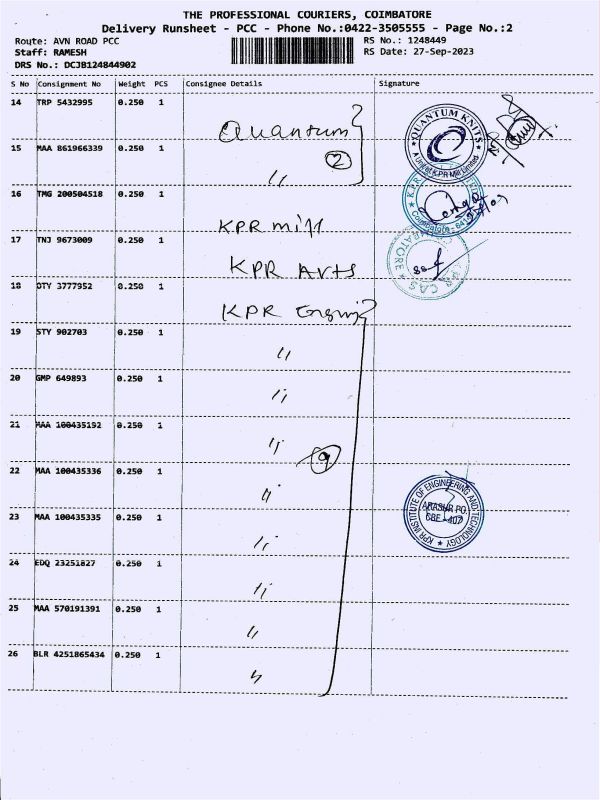 THE PROFESSIONAL COURIERS, COIMBATORE
Delivery Runsheet - PCC - Phone No.:0422-3505555 - Page No.:2
Route: AVN ROAD PCC
Staff: RAMESH
DRS No.: DCJB124844902
RS No.: 1248449
RS Date: 27-Sep-2023
S No Consignment No Weight PCS Consignee Details Signature
14 TRP 5432995 0.250 1 Quantum
15 MAA 861966339 0.250 1 〃
2
16 TMG 200504518 0.250 1 KPR mill
17 TNJ 9673009 0.250 1 KPR Arts
18 OTY 3777952 0.250 1 KPR
19 STY 902703 0.250 1 〃
20 GMP 649893 0.250 1 〃
21 MAA 100435192 0.250 1 〃
9
22 MAA 100435336 0.250 1 〃
23 MAA 100435335 0.250 1 〃
24 EDQ 23251827 0.250 1 〃
25 MAA 570191391 0.250 1 〃
26 BLR 4251865434 0.250 1 〃
QUANTUM KNITS
A Unit of K.P.R Mill Limited
KPR CAS
KPR INSTITUTE OF ENGINEERING AND TECHNOLOGY
ARASUR PO.
CBE - 407